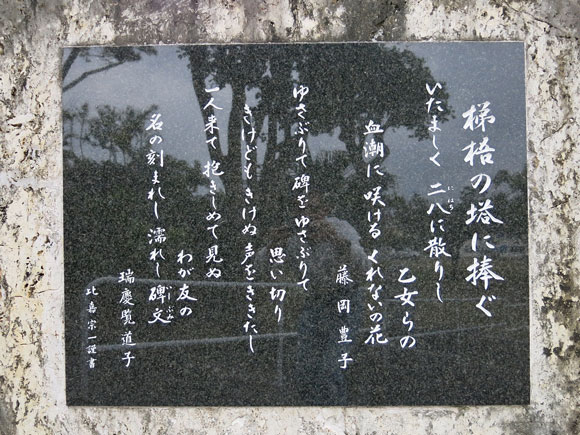 梯梧の塔に捧ぐ
いたましく 二八に散りし
にはち
乙女らの
血潮に咲ける くれないの花
藤岡豊子
ゆさぶりて 碑を ゆさぶりて
思い切り
きけども きけぬ 声をききたし
一人来て 抱きしめて見ぬ
わが友の
名の刻まれし 濡れし 碑文
いぶみ
瑞慶覧道子
比嘉宗一謹書